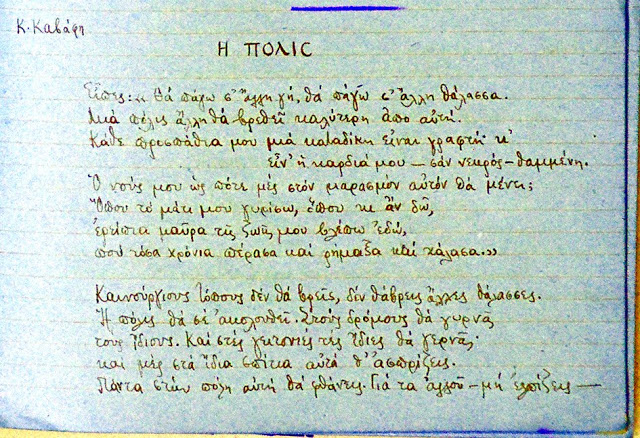 Κ. Καβάφη
Η ΠΟΛΙΣ
Εἶπες: « Θά πάγω σ' ἄλλη γῆ, θά πάγω σ' ἄλλη θάλασσα.
Μιά πόλις ἄλλη θά βρεθεῖ καλύτερη ἀπό αὐτή.
Κάθε προσπάθεια μου μιά καταδίκη εἶναι γραφτή κ'
εἶν' ἡ καρδιά μου — σάν νεκρός — θαμμένη.
Ὁ νοῦς μου ὡς πότε μές στόν μαρασμόν αὐτόν θά μένει;
Ὅπου τό μάτι μου γυρίσω, ὅπου κι ἄν δῶ,
ἐρείπια μαῦρα τῆς ζωῆς μου βλέπω ἐδῶ,
πού τόσα χρόνια πέρασα καί ρήμαξα καί χάλασα.»
Καινούργιους τόπους δέν θά βρεῖς, δέν θἄβρεις ἄλλες θάλασσες.
Ἡ πόλις θά σέ ἀκολουθεῖ. Στούς δρόμους θά γυρνᾶς
τούς ἴδιους. Καί στές γειτονιές τές ἴδιες θά γερνᾶς·
καί μές στά ἴδια σπίτια αὐτά θ' ἀσπρίζεις.
Πάντα στήν πόλη αὐτή θά φθάνεις. Γιά τά ἀλλοῦ — μή ἐλπίζεις —